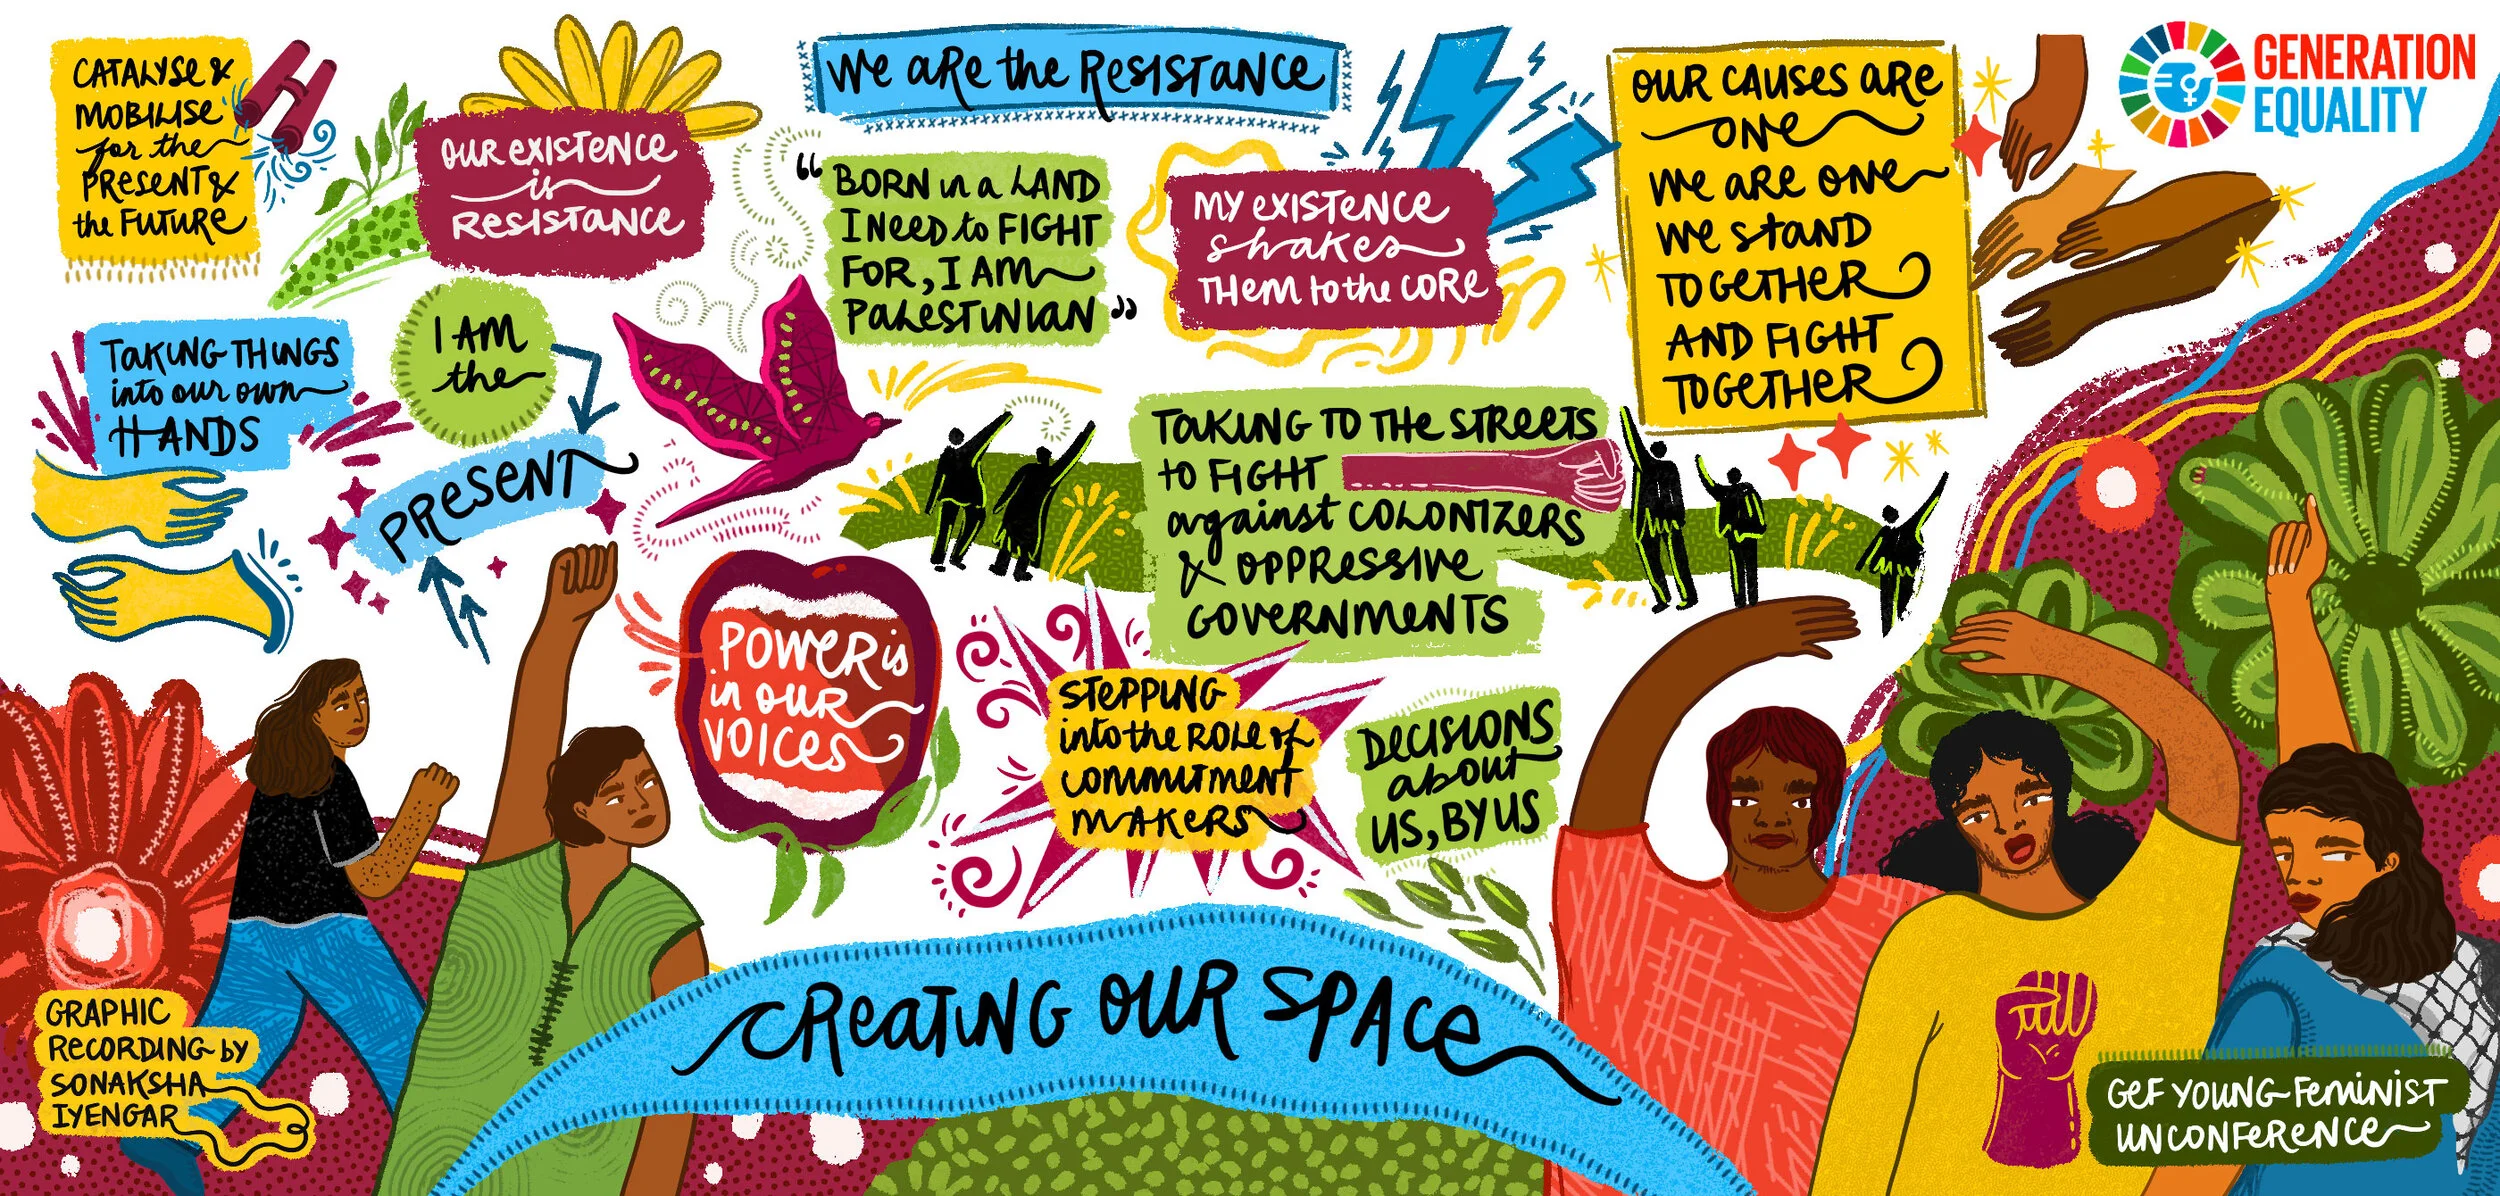 CATALYSE &
MOBILISE
for the
PRESENT &
the FUTURE
OUR EXISTENCE
is
RESISTANCE
WE ARE the RESISTANCE
"BORN in a LAND
I NEED to FIGHT
FOR, I AM
PALESTINIAN"
MY EXISTENCE
shakes
THEM to the CORE
OUR CAUSES ARE
ONE
WE ARE ONE
WE STAND
TOGETHER
AND FIGHT
TOGETHER
GENERATION
EQUALITY
TAKING THINGS
into our own
HANDS
I AM
the
PRESENT
TAKING TO THE STREETS
to FIGHT
against COLONIZERS
& OPPRESSIVE
GOVERNMENTS
POWER is
in OUR
VOICES
STEPPING
into the ROLE of
COMMITMENT
MAKERS
DECISIONS
about
US, BY US
CREATING OUR SPACE
GRAPHIC
RECORDING by
SONAKSHA
IYENGAR
GEF YOUNG FEMINIST
UNCONFERENCE